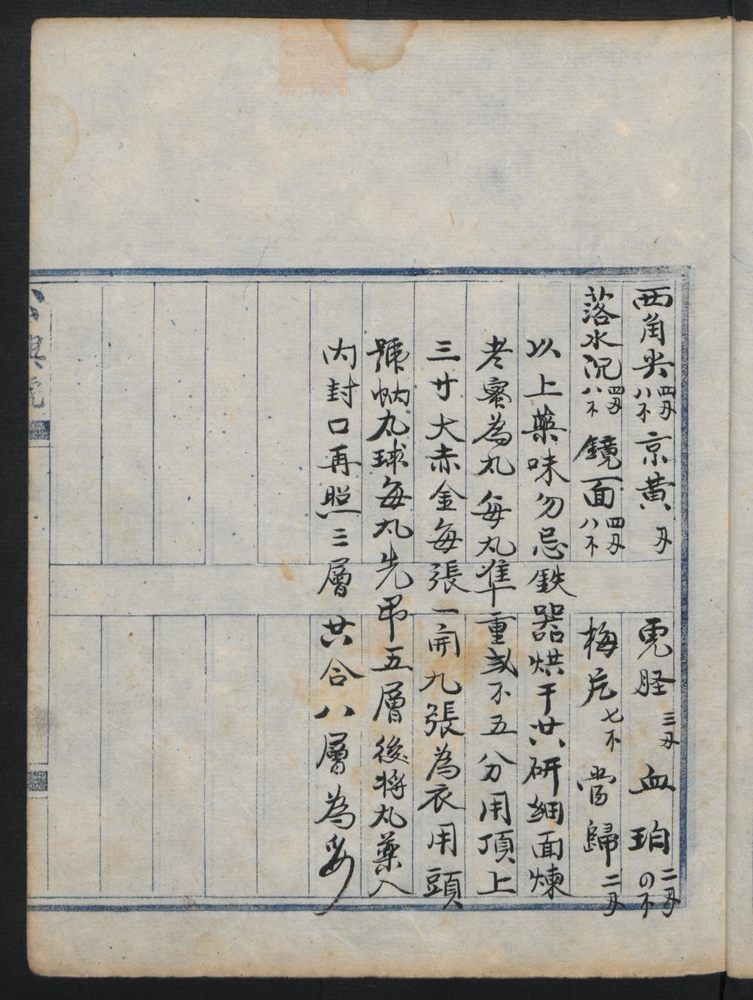 西角尖四刄八不京黄刄虎胫三刄血珀二刄の不
落水沉四刄八不鏡面四刄八不梅片七不當歸二刄
以上藥味勿忌鉄器烘干共研細面煉
老蜜為丸每丸准重弍不五分用頂上
三廿大赤金每張一開九張為衣用頭
號蚋丸球每丸先吊五層後將丸藥入
内封口再照三層共合八層為妥